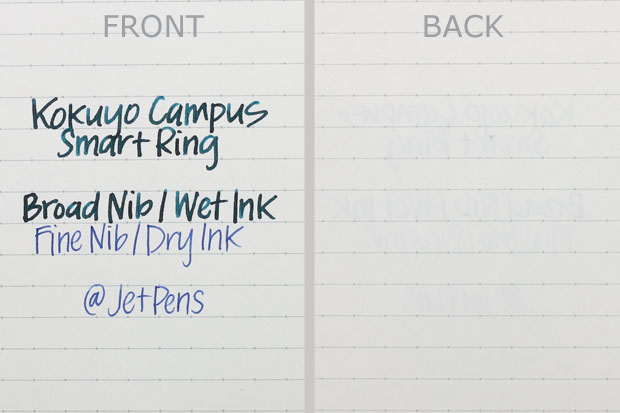 FRONT
Kokuyo Campus
Smart Ring
Broad Nib / Wet Ink
Fine Nib / Dry Ink
@JetPens
BACK